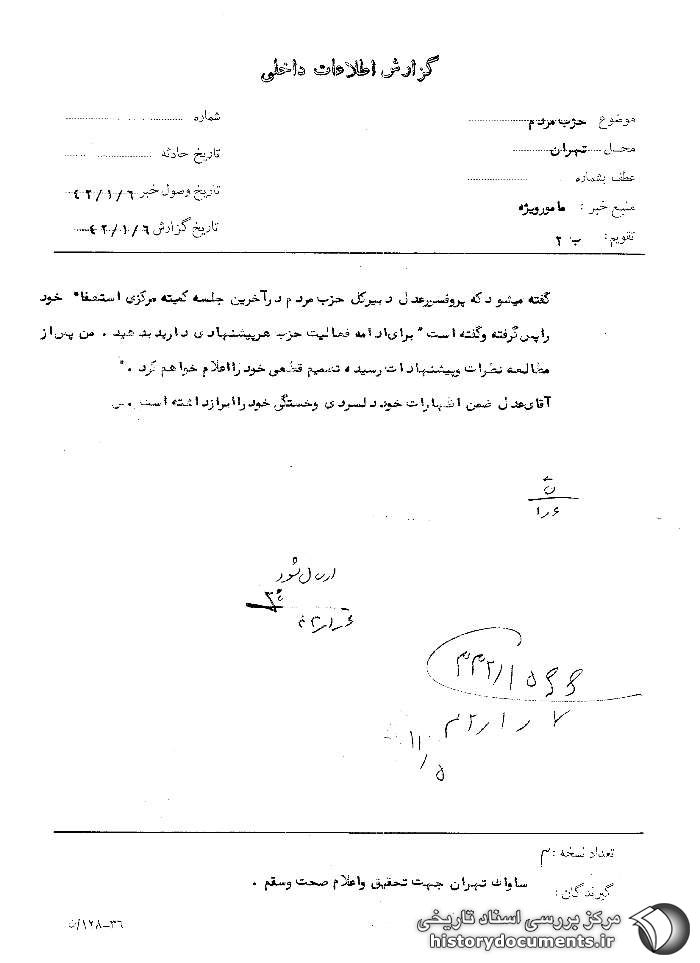 گزارش اطلاعات داخلی
موضوع حزب مردم
شماره
محل تهران
تاریخ حادثه
عطف بشماره
تاریخ وصول خبر ۴۲/۱/۶
منبع خبر : مامورویژه
تاریخ گزارش ۴۲/۱/۶
تقویم: ب ۲
گفته میشود که پروفسورعدل دبیرکل حزب مردم درآخرین جلسه کمیته مرکزی استعفا" خود
راپس گرفته وگفته است " برای ادامه فعالیت حزب هرپیشنهادی دارید بدهید . من پس از
مطالعه نظرات وپیشنهادات رسیده تصمیم قطعی خودرااعلام خواهم کرد . "
آقای عدل ضمن اظهارات خود دلسردی وخستگی خودراابرازداشته است .
۶ر۱
ارسال شود
۳۳۲/۱۵۶۶
۷ ر ۱ ر ۴۲
۱۱/۵
تعداد نسخه : ۳
گیرندگان : ساواک تهران جهت تحقیق واعلام صحت وسقم .
۳۶-۱۲۸/ن
مرکز بررسی اسناد تاریخی
historydocuments.ir